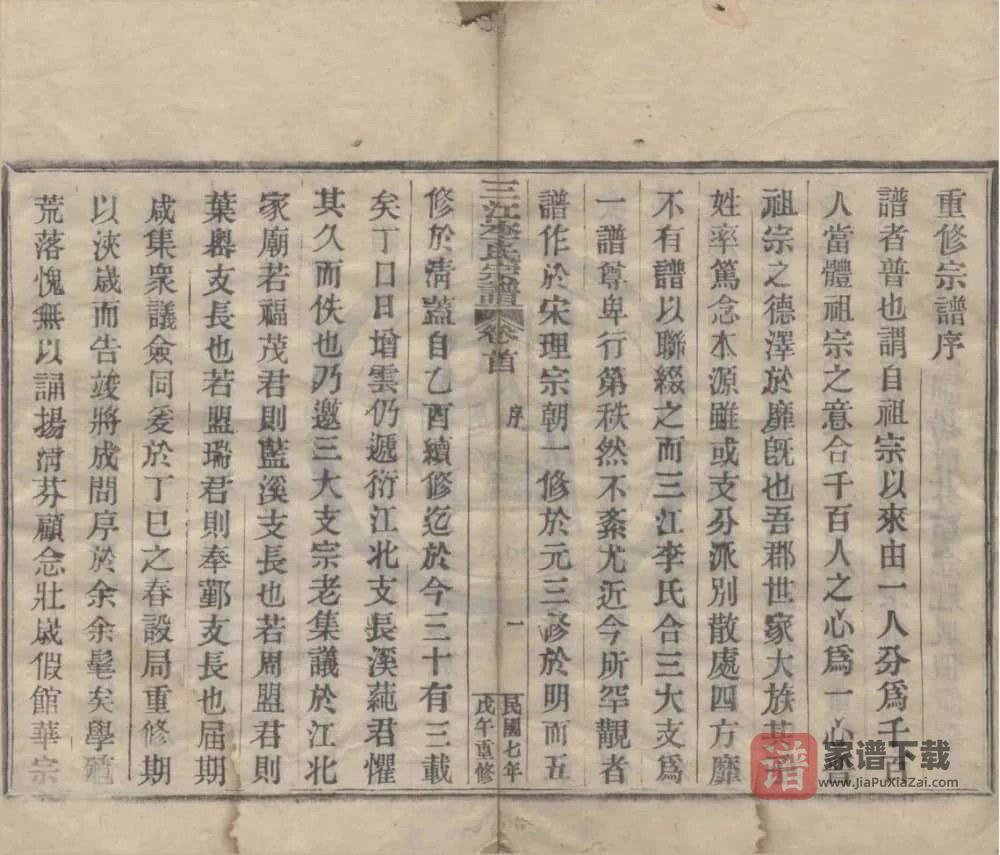 重修宗譜序
譜者普也謂自祖宗以來由一人分爲千百
人當體祖宗之意合千百人之心爲一心普
祖宗之德澤於靡旣也吾郡世家大族其
姓率篤念本源雖或支分派別散處四方靡
不有譜以聯綴之而三江李氏合三大支爲
一譜尊卑行第秩然不紊尤近今所罕覯者
譜作於宋理宗朝一修於元三修於明而五
三江李氏宗譜 卷首 序 一 民國七年戊午重修
修於清蓋自乙酉續修迄於今三十有三載
矣丁口日增雲仍遞衍江北支長溪蒓君懼
其久而佚也乃邀三大支宗老集議於江北
家廟若福茂君則藍溪支長也若周盟君則
葉嶴支長也若盟瑞君則奉鄞支長也届期
咸集衆議僉同爰於丁巳之春設局重修期
以浹歲而告竣將成問序於余余髦矣學殖
荒落愧無以誦揚淸芬顧念壯歲假館華宗
譜
家谱下载
www.JiaPuXiaZai.com